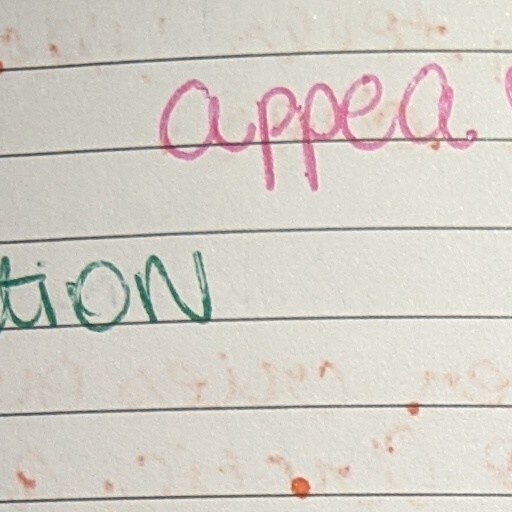 appea
tion